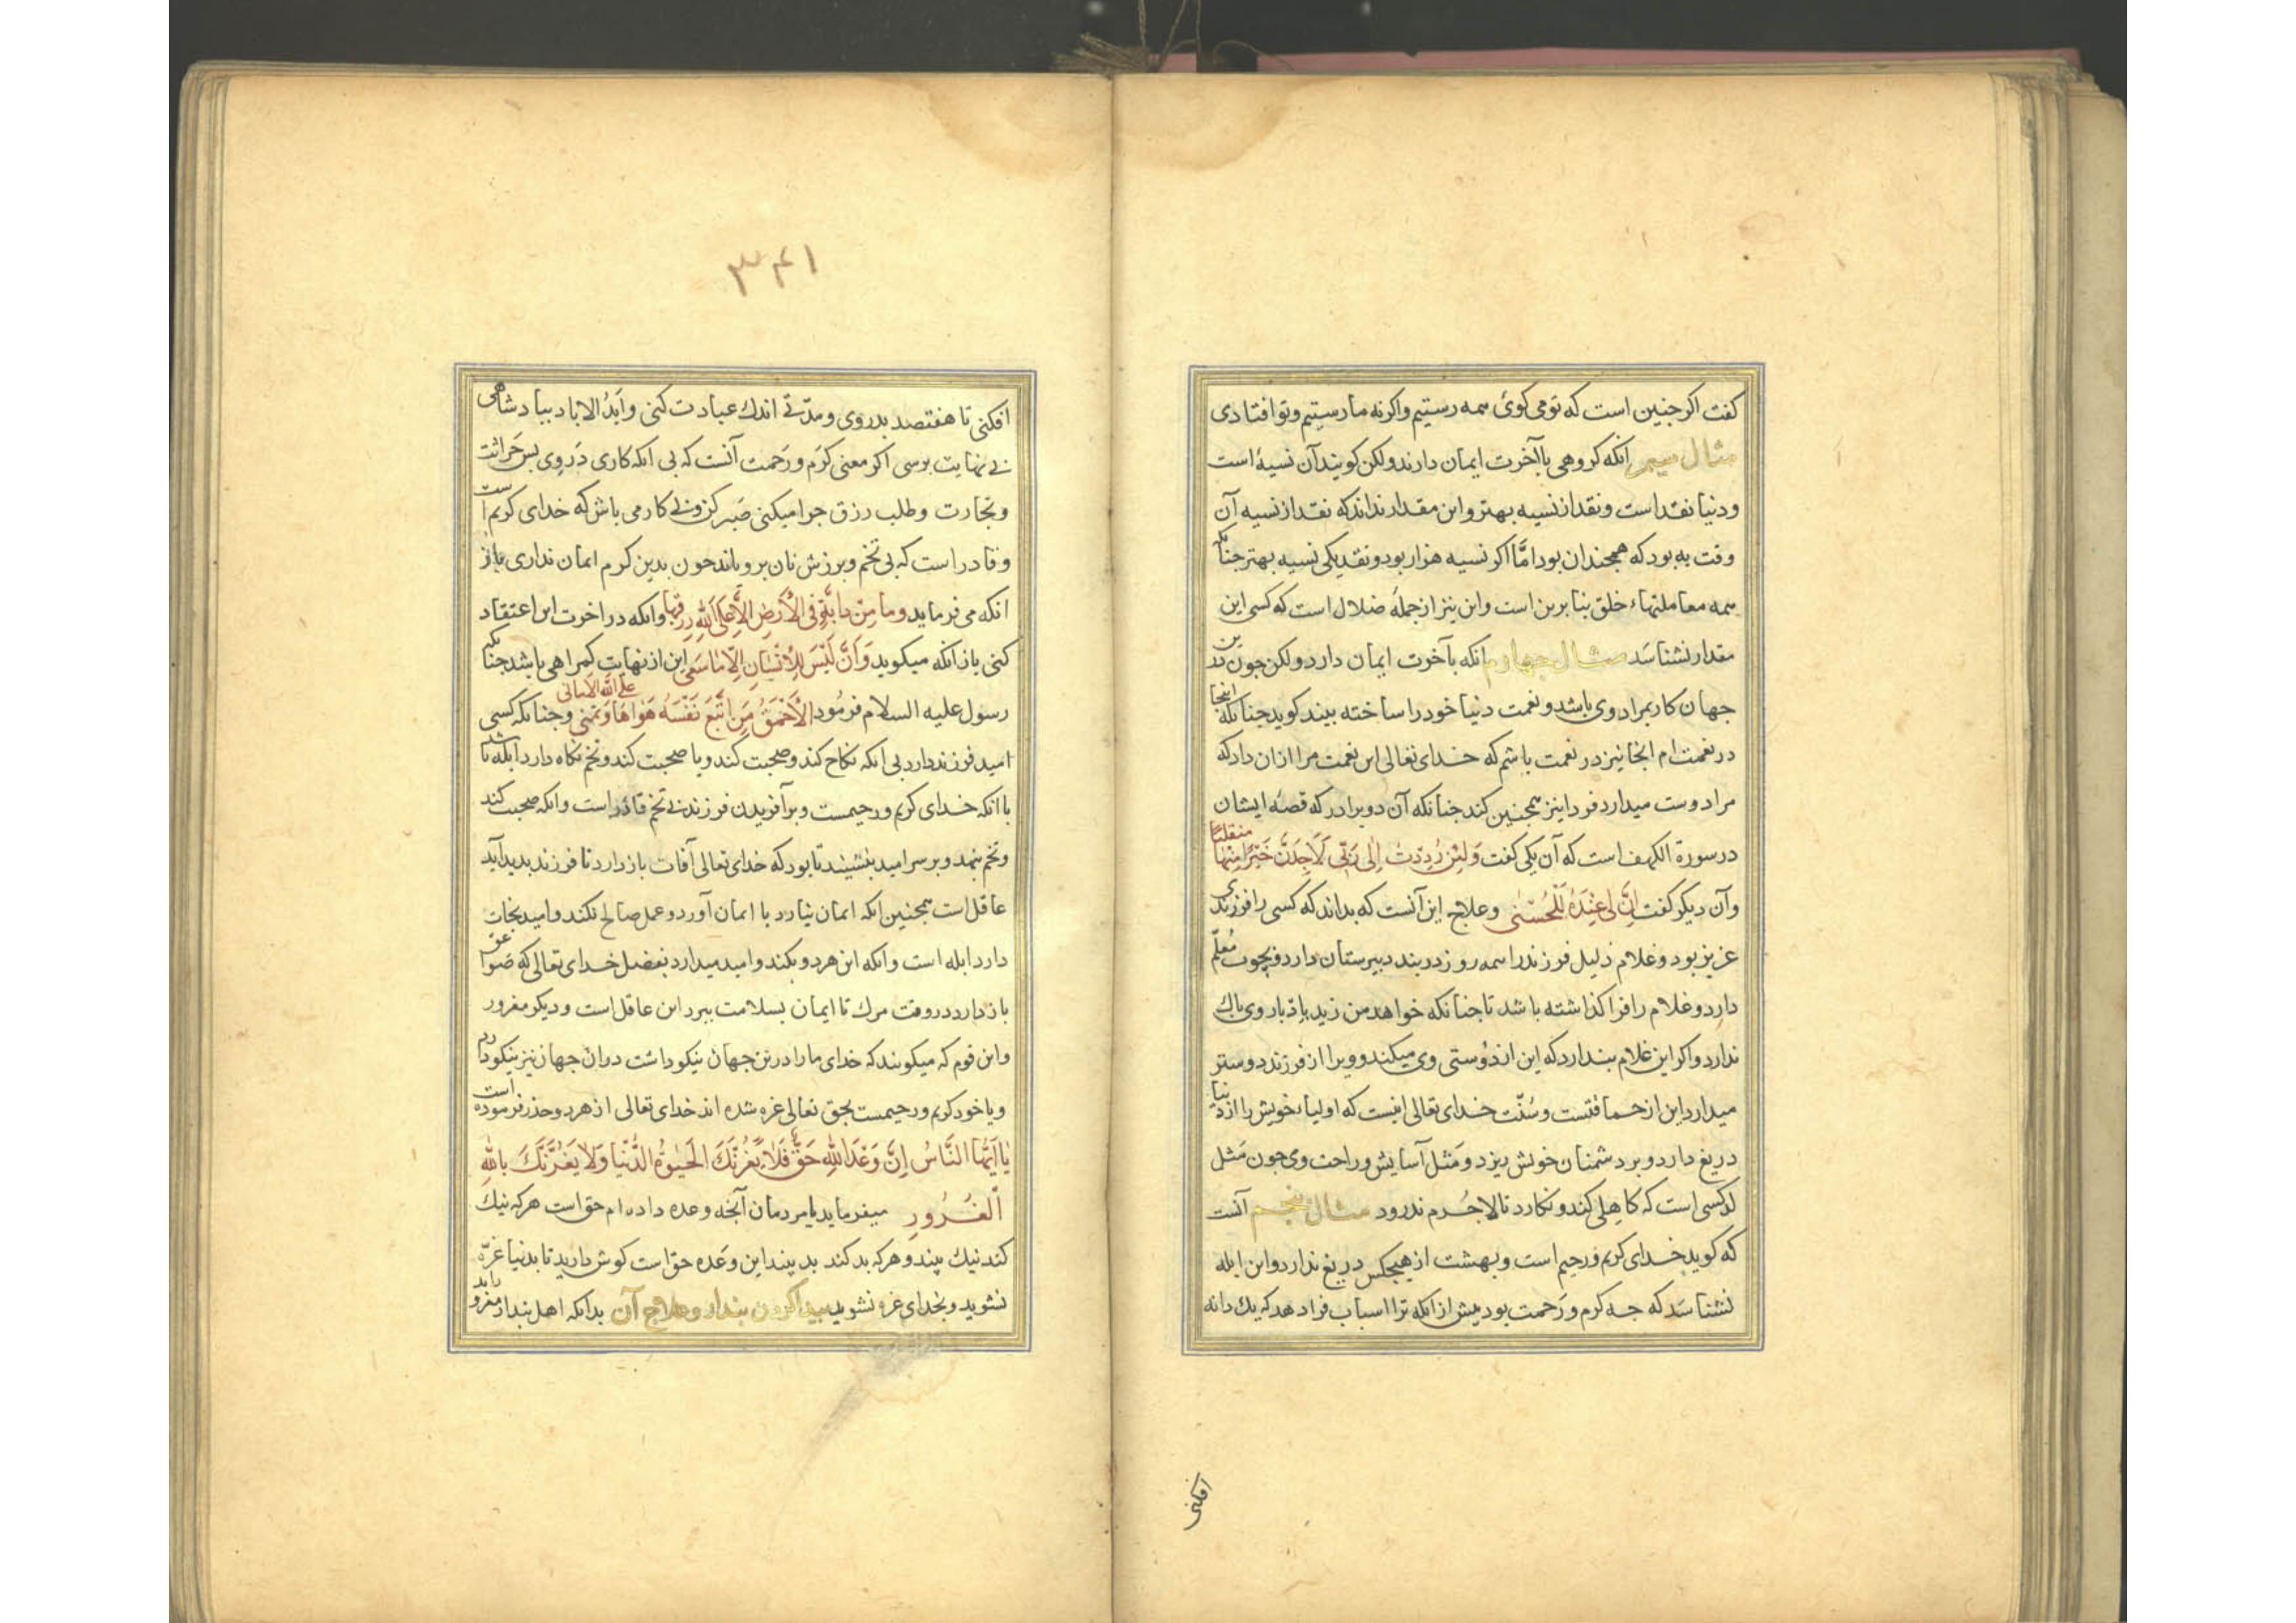 كفت اكر جنين است كه تو مى كوئ همه رستيم واكر نه ما رستيم وتو افتادى
مثال سيم انكه كروهى باآخرت ايمان دارند ولكن كويند آن نسيۀ است
ودنيا نقد است ونقد از نسيه بهتر واين مقدار ندانند كه نقد از نسيه آن
وقت به بود كه همجندان بود امَّا اكر نسيه هزار بود ونقد يكى نسيه بهتر جنانكه
همه معاملتهاء خلق بنا برين است واين نيز از جملۀ ضلال است كه كسى اين
مقدار نشناسَد مثال جهارم انكه بآخرت ايمان دارد ولكن جون درين
جهان كار بمراد وى باشد ونعمت دنيا خود را ساخته بيند كويد جنانكه اينجا
در نعمت ام انجا نيز در نعمت باشم كه خداى تعالى اين نعمت مرا ازان داد كه
مرا دوست ميدارد فردا نيز همجنين كند جنانكه آن دو برادر كه قصۀ ايشان
در سورة الكهف است كه آن يكى كفت وَلَئِنْ رُدِدْتُ اِلٰى رَبّى لَاَجِدَنَّ خَيْرًا مِنْهَا منقلبًا
وآن ديكر كفت اِنَّ لى عِنْدَهُ لَلْحُسْنٰى وعلاج اين آنست كه بداند كه كسى را فرزندى
عزيز بود وغلام ذليل فرزند را همه روز در بند دبيرستان دارد وبجوب مُعلّم
دارد وغلام را فرا كذاشته باشد تا جنانكه خواهد من زيد باادبار وى باك
ندارد واكر اين غلام بندارد كه اين از دُوستى وى ميكند وويرا از فرزند دوستتر
ميدارد اين از حماقتست وسُنّت خداى تعالى اينست كه اولياء خويش را از دنيا
دريغ دارد وبر دشمنان خويش ريزد ومَثل آسايش وراحت وى جون مَثل
كسى است كه كاهِلى كند ونكارد تا لاجُرم ندرود مثال بنجم آنست
كه كويد خداى كريم ورحيم است وبهشت از هيجكس دريغ ندارد واين ابله
نشناسَد كه جه كرم ورَحمت بود بيش از انكه ترا اسباب فرا دهد كه يك دانه
افكنى
٣٤١
افكنى تا هفتصد بدروى ومدّتى اندك عبادت كنى وابَدُ الاباد ببادشاهى
بى نهايت برسى اكر معنى كرَم ورَحمت آنست كه بى انكه كارى دَروى بس حَراثت
وتجارت وطلب رزق جرا ميكنى صَبر كن وبى كار مى باش كه خداى كريم است
وقادر است كه بى تخم وبرزش نان بروياند جون بدين كرم ايمان ندارى باز
انكه مى فرمايد وما مِنْ دابّةٍ فى الْأَرضِ اِلّا عَلَى اللّٰهِ رِزقها وانكه در اخرت اين اعتقاد
كنى باز انكه ميكويد وَاَنَّ لَيْسَ لِلْاِنْسٰانِ اِلّا ماسَعى اين از نهايت كمراهى باشد جنانكه
رسول عليه السلام فرمُود الْأَحْمَقُ مَن اتَّبَعَ نَفْسَهُ هَوٰاهَا وَتَمنى على اللّٰه الامانى وجنانكه كسى
اميد فرزند دارد بى انكه نكاح كند وصحبت كند ويا صحبت كند وتخم نكاه دارد ابله باشد
با انكه خداى كريم ورحيمست وبر آفريدن فرزند بى تخم قادر است وانكه صحبت كند
وتخم بنهد وبر سر اميد بنشيند تا بود كه خداى تعالى آفات باز دارد تا فرزند بديد آيد
عاقل است همجنين انكه ايمان نيارد يا ايمان آورد وعمل صالح نكند واميد نجات
دارد ابله است وانكه اين هر دو بكند واميد ميدارد بفضل خداى تعالى كه صَواعق
باز دارد در وقت مرك تا ايمان بسلامت ببرد اين عاقل است وديكر مغرور
واين قوم كه ميكويند كه خداى ما را درين جهان نيكو داشت دران جهان نيز نيكو دارد
ويا خود كريم ورحيمست بحق تعالى غره شده اند خداى تعالى از هر دو حذر فرموده است
يٰا اَيُّهَا النَّاسُ اِنَّ وَعْدَ اللّٰهِ حَقٌّ فَلَا يَغُرَّنَّكَ الْحَيٰوةُ الدُّنْيَا وَلَا يَغُرَّنَّكَ بِاللّٰهِ
الْغُرُورِ ميفرمايد يا مردمان آنجه وعده داده ام حق است هر كه نيك
كند نيك بيند وهر كه بد كند بد بيند اين وعَده حق است كوش داريد تا بدنيا غرّه
نشويد وبخداى غره نشويد بيدا كردن بندار وعلاج آن بدانكه اهل بندار مغرورانند